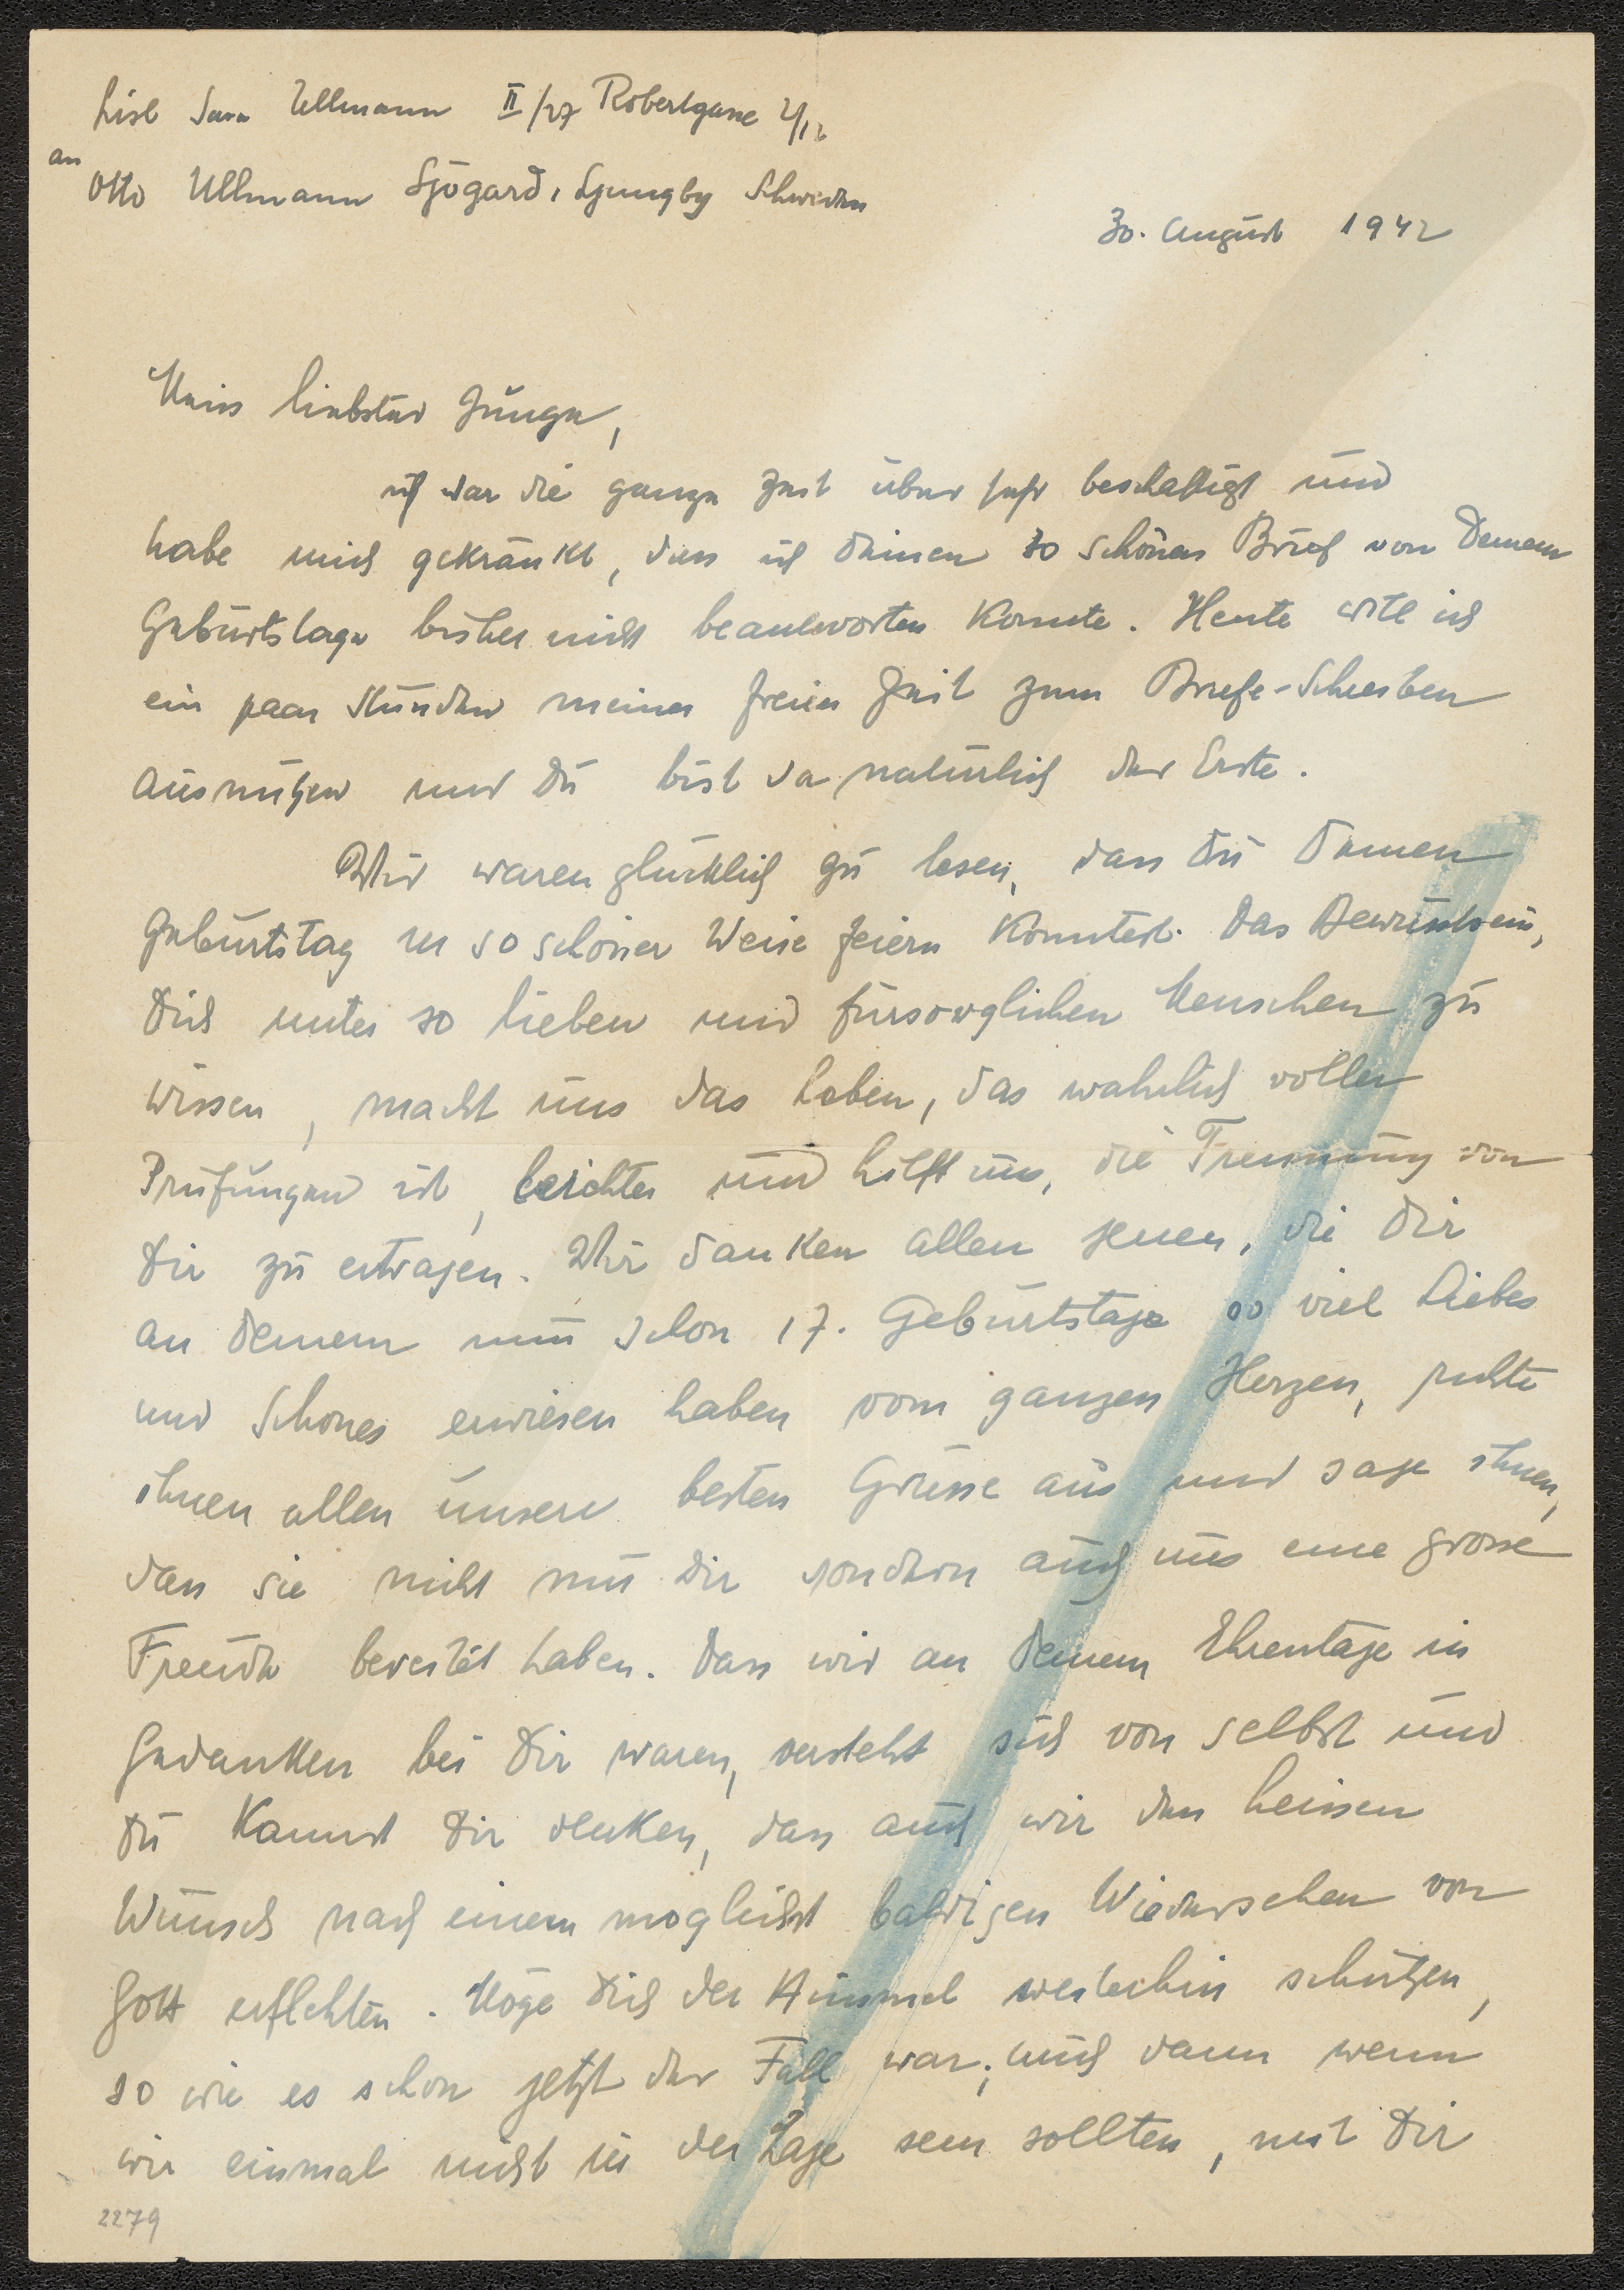 Lise Sara Ullmann II/27 Robertgasse 2/12
an
Otto Ullmann Sjögard, Ljungby Schweden
30. August 1942
Mein liebster Junge,
ich war die ganze Zeit über sehr beschäftigt und
habe mich gekränkt, dass ich Deinen so schönen Brief von Deinem
Geburtstage bisher nicht beantworten konnte. Heute will ich
ein paar Stunden meiner freien Zeit zum Briefe-Schreiben
ausnützen und Du bist da natürlich der Erste.
Wir waren glücklich zu lesen, dass Du Deinen
Geburtstag in so schöner Weise feiern konntest. Das Bewusstsein,
Dich unter so lieben und fürsorglichen Menschen zu
wissen, macht uns das Leben, das wahrlich voller
Prüfungen ist, leichter und hilft uns, die Trennung von
Dir zu ertragen. Wir danken allen jenen, die Dir
an Deinem nun schon 17. Geburtstage so viel Liebes
und Schönes erwiesen haben vom ganzen Herzen, richte
ihnen allen unsere besten Grüsse aus und sage ihnen,
dass sie nicht nur Dir sondern auch uns eine grosse
Freude bereitet haben. Dass wir an Deinem Ehrentage in
Gedanken bei Dir waren, versteht sich von selbst und
Du kannst Dir denken, dass auch wir den heissen
Wunsch nach einem möglichst baldigen Wiedersehen von
Gott erflehten. Möge Dich der Himmel weiterhin schützen,
so wie es schon jetzt der Fall war; auch dann wenn
wir einmal nicht in der Lage sein sollten, mit Dir
2279